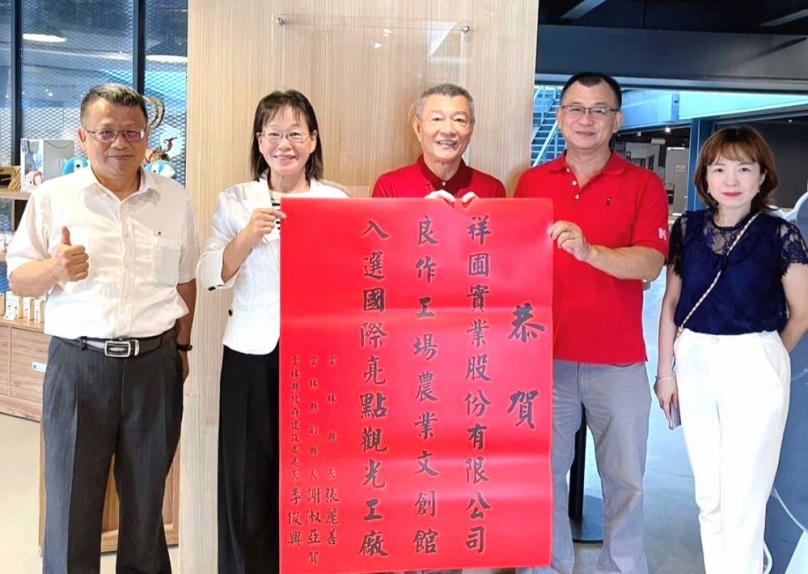 恭賀
祥圃實業股份有限公司
良作工場農業文創館
入選國際亮點觀光工廠
雲林縣長張麗善
雲林縣副縣長謝淑亞賀
雲林縣政府建設處處長李俊興